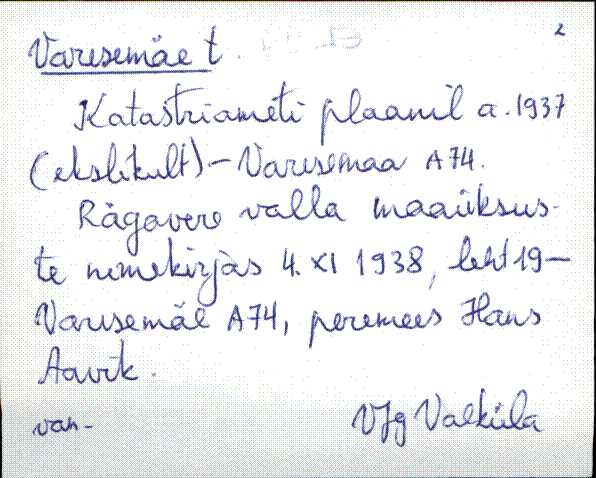 2
Varesemäe t.
Katastriameti plaanil a. 1937
(ekslikult) – Varesemaa A74.
Rägavere valla maaüksus-
te nimekirjas 4. XI 1938, leht 19 –
Varesemäe A74, peremees Hans
Aavik.
van- VJg Vaeküla